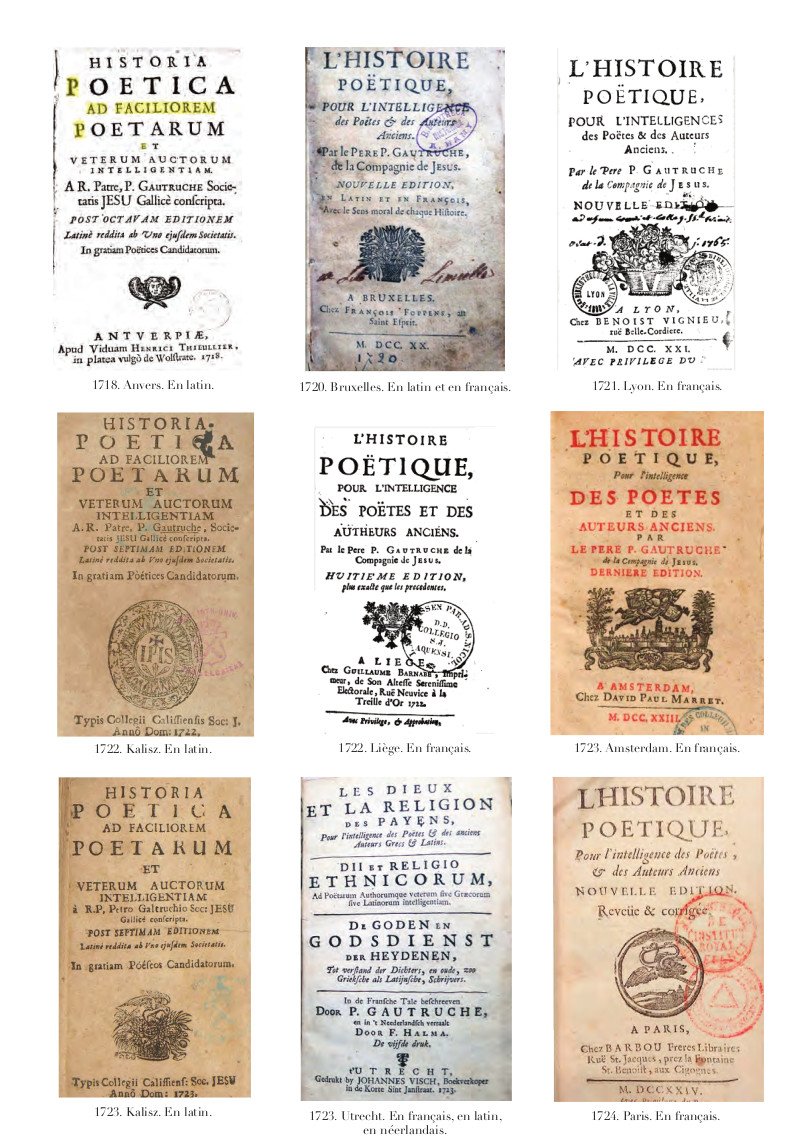 HISTORIA
POETICA
AD FACILIOREM
POETARUM
ET
VETERUM AUCTORUM
INTELLIGENTIAM.
A R. Patre, P. GAUTRUCHE Socie-
tatis JESU Gallicè conſcripta.
POST OCTAVAM EDITIONEM
Latinè reddita ab Uno ejuſdem Societatis.
In gratiam Poëtices Candidatorum.
ANTVERPIÆ,
Apud Viduam HENRICI THIEULLIER,
in platea vulgò de Wolſtrate. 1718.
1718. Anvers. En latin.
L'HISTOIRE
POËTIQUE,
POUR L'INTELLIGENCE
des Poëtes & des Auteurs
Anciens.
Par le PERE P. GAUTRUCHE,
de la Compagnie de Jesus.
NOUVELLE EDITION,
EN LATIN ET EN FRANÇOIS,
Avec le Sens moral de chaque Hiſtoire.
A BRUXELLES.
Chez FRANÇOIS FOPPENS, au
Saint Eſprit.
M. DCC. XX.
1720
1720. Bruxelles. En latin et en français.
L'HISTOIRE
POËTIQUE,
POUR L'INTELLIGENCES
des Poëtes & des Auteurs
Anciens.
Par le Pere P. GAUTRUCHE
de la Compagnie de JESUS.
NOUVELLE EDITION
1765
LYON
A LYON,
Chez BENOIST VIGNIEU,
ruë Belle-Cordiere.
M. DCC. XXI.
AVEC PRIVILEGE DU
1721. Lyon. En français.
HISTORIA
POETICA
AD FACILIOREM
POETARUM
ET
VETERUM AUCTORUM
INTELLIGENTIAM
A.R. Patre, P. Gautruche, Socie-
tatis JESU Gallicé conſcripta.
POST SEPTIMAM EDITIONEM
Latiné reddita ab Vno ejuſdem Societatis.
In gratiam Pöétices Candidatorum.
IHS
Typis Collegii Caliſſienſis Soc: J.
Annô Dom: 1722.
1722. Kalisz. En latin.
L'HISTOIRE
POËTIQUE,
POUR L'INTELLIGENCE
DES POËTES ET DES
AUTHEURS ANCIENS.
Par le Pere P. GAUTRUCHE de la
Compagnie de JESUS.
HVITIEME EDITION,
plus exacte que les precedentes.
D.D.
COLLEGIO
S.J.
A LIEGE,
Chez GUILLAUME BARNABE', Impri-
meur, de Son Alteſſe Sereniſſime
Electorale, Ruë Neuvice à la
Treille d'Or 1722.
Avec Privilege, & Approbation,
1722. Liège. En français.
L'HISTOIRE
POETIQUE,
Pour l'intelligence
DES POETES
ET DES
AUTEURS ANCIENS.
PAR
LE PERE P. GAUTRUCHE
de la Compagnie de JESUS.
DERNIERE EDITION.
A AMSTERDAM,
Chez DAVID PAUL MARRET.
M. DCC, XXIII.
1723. Amsterdam. En français.
HISTORIA
POETICA
AD FACILIOREM
POETARUM
ET
VETERUM AUCTORUM
INTELLIGENTIAM
à R.P. Petro Galtruchio Soc: JESU
Gallicé conſcripta.
POST SEPTIMAM EDITIONEM
Latiné reddita ab Vno ejuſdem Societatis.
In gratiam Pöéſeos Candidatorum.
Typis Collegii Caliſſienſ: Soc. JESU
Annô Dom: 1723.
1723. Kalisz. En latin.
LES DIEUX
ET LA RELIGION
DES PAYENS,
Pour l'intelligence des Poëtes & des anciens
Auteurs Grecs & Latins.
DII ET RELIGIO
ETHNICORUM,
Ad Poëtarum Authorumque veterum ſive Græcorum
ſive Latinorum intelligentiam.
DE GODEN EN
GODSDIENST
DER HEYDENEN,
Tot verſtand der Dichters, en oude, zoo
Griekſche als Latijnſche, Schrijvers.
In de Franſche Tale beſchreeven
DOOR P. GAUTRUCHE,
en in 't Neederlandſch vertaalt
DOOR F. HALMA.
De vijfde druk.
t'UTRECHT,
Gedrukt by JOHANNES VISCH, Boekverkoper
in de Korte Sint Janſtraat. 1723.
1723. Utrecht. En français, en latin,
en néerlandais.
L'HISTOIRE
POETIQUE,
Pour l'intelligence des Poëtes,
& des Auteurs Anciens
NOUVELLE EDITION.
Reveüe & corrigée
A PARIS,
Chez BARBOU Freres Libraires
Ruë St. Jacques, prez la Fontaine
St. Benoiſt, aux Cigognes.
M. DCCXXIV.
1724. Paris. En français.